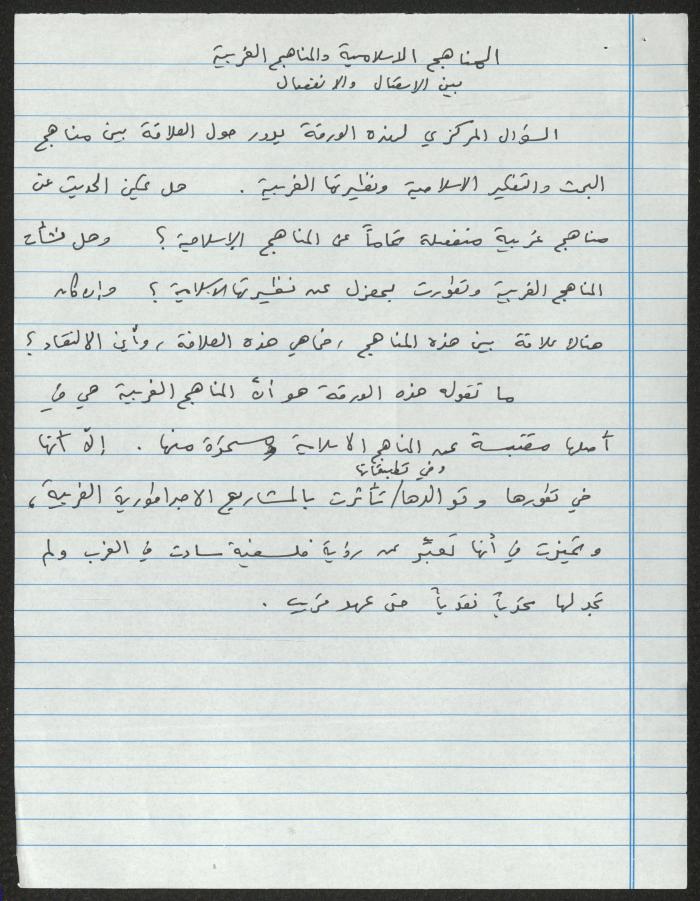 المناهج الاسلامية والمناهج الغربية
بين الاتصال والانفصال
السؤال المركزي لهذه الورقة يدور حول العلاقة بين مناهج
البحث والتفكير الاسلامية ونظيرتها الغربية . هل يمكن الحديث عن
مناهج غربية منفصلة تماماً عن المناهج الإسلامية ؟ وهل نشأت
المناهج الغربية وتطورت بمعزل عن نظيرتها الاسلامية ؟ وإن كان
هنالك علاقة بين هذه المناهج ، فما هي هذه العلاقة ، وأين الالتقاء ؟
ما تقوله هذه الورقة هو أنّ المناهج الغربية هي في
أصلها مقتبسة عن المناهج الاسلامية منها . إلاّ أنها
وفي تطبيقاتها
في تطورها وتوالدها / تأثرت بالمشاريع الامبراطورية الغربية ،
وتميزت في أنها تعبّر عن رؤية فلسفية سادت في الغرب ولم
تجد لها تحدّياً نقدياً حتى عهد قريب .